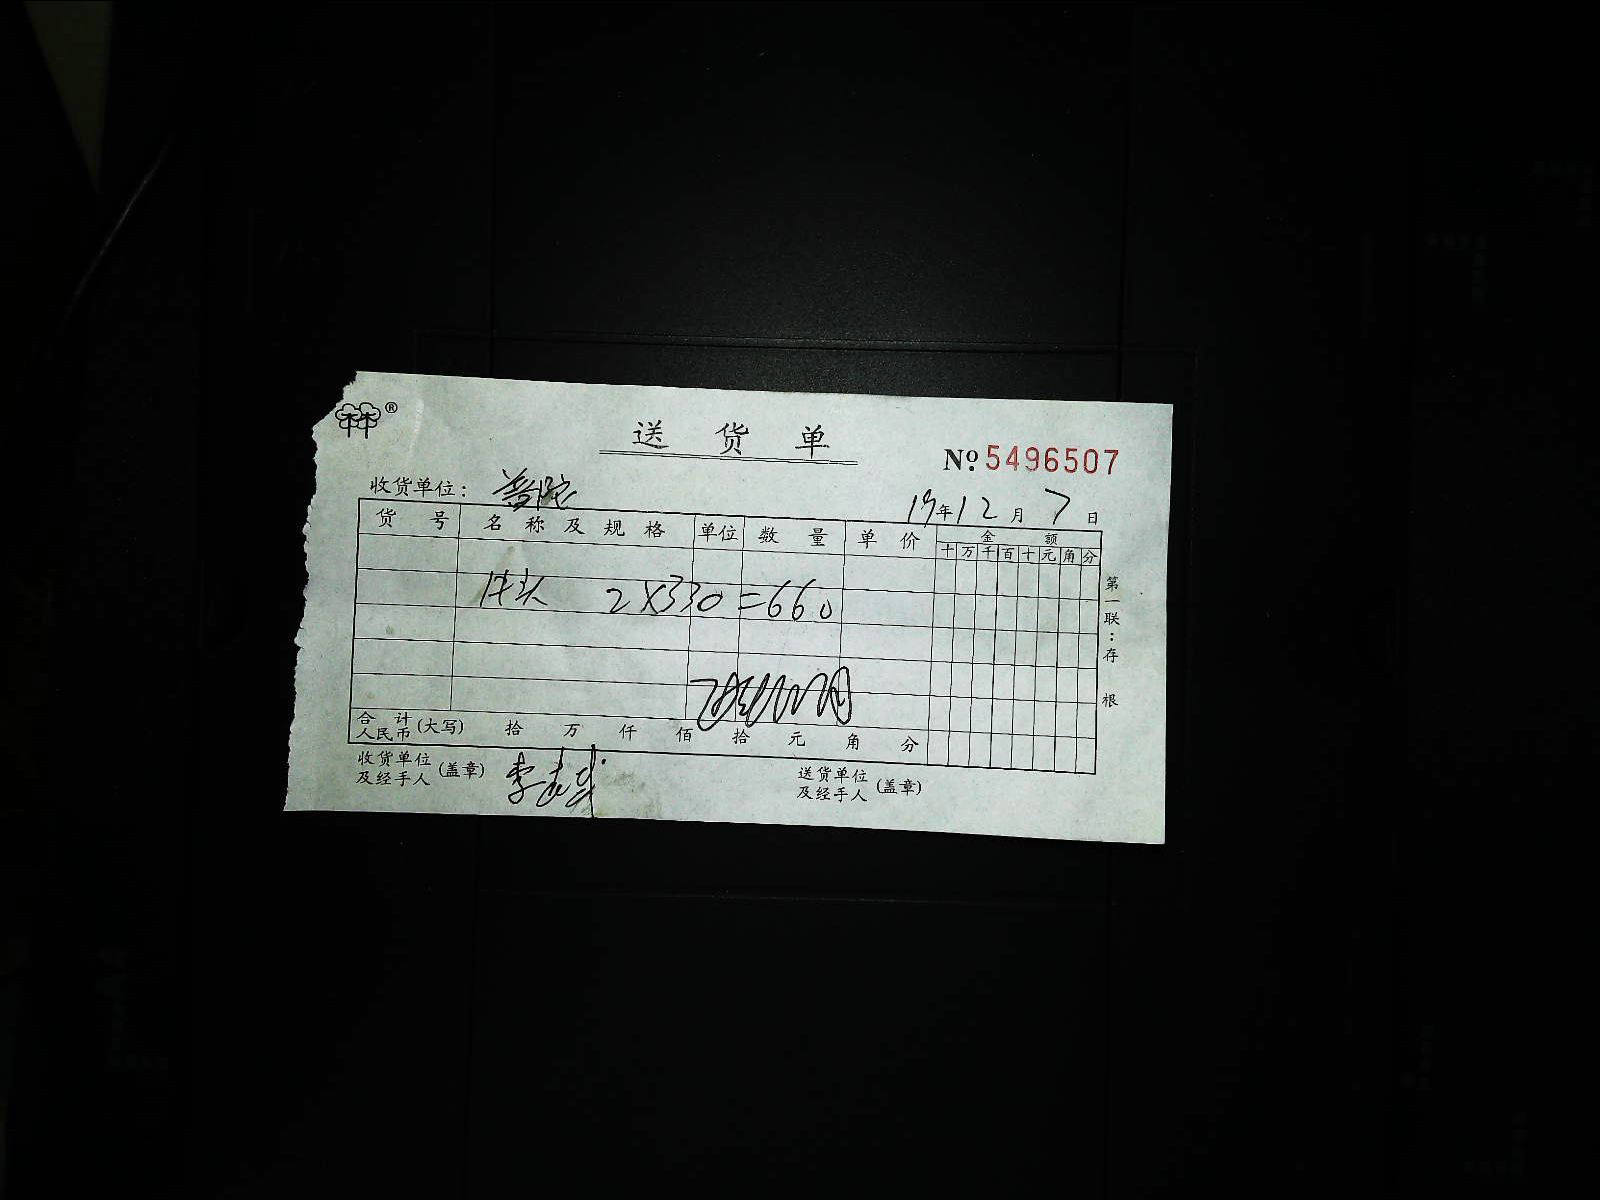 ®
送货单
No 5496507
收货单位: 普陀
19年12月7日
货号 名称及规格 单位 数量 单价 金额
十万千百十元角分
牛头 2X330=660
合计人民币(大写) 拾 万 仟 佰 拾 元 角 分
收货单位及经手人(盖章) 李
送货单位及经手人(盖章)
第一联:存根